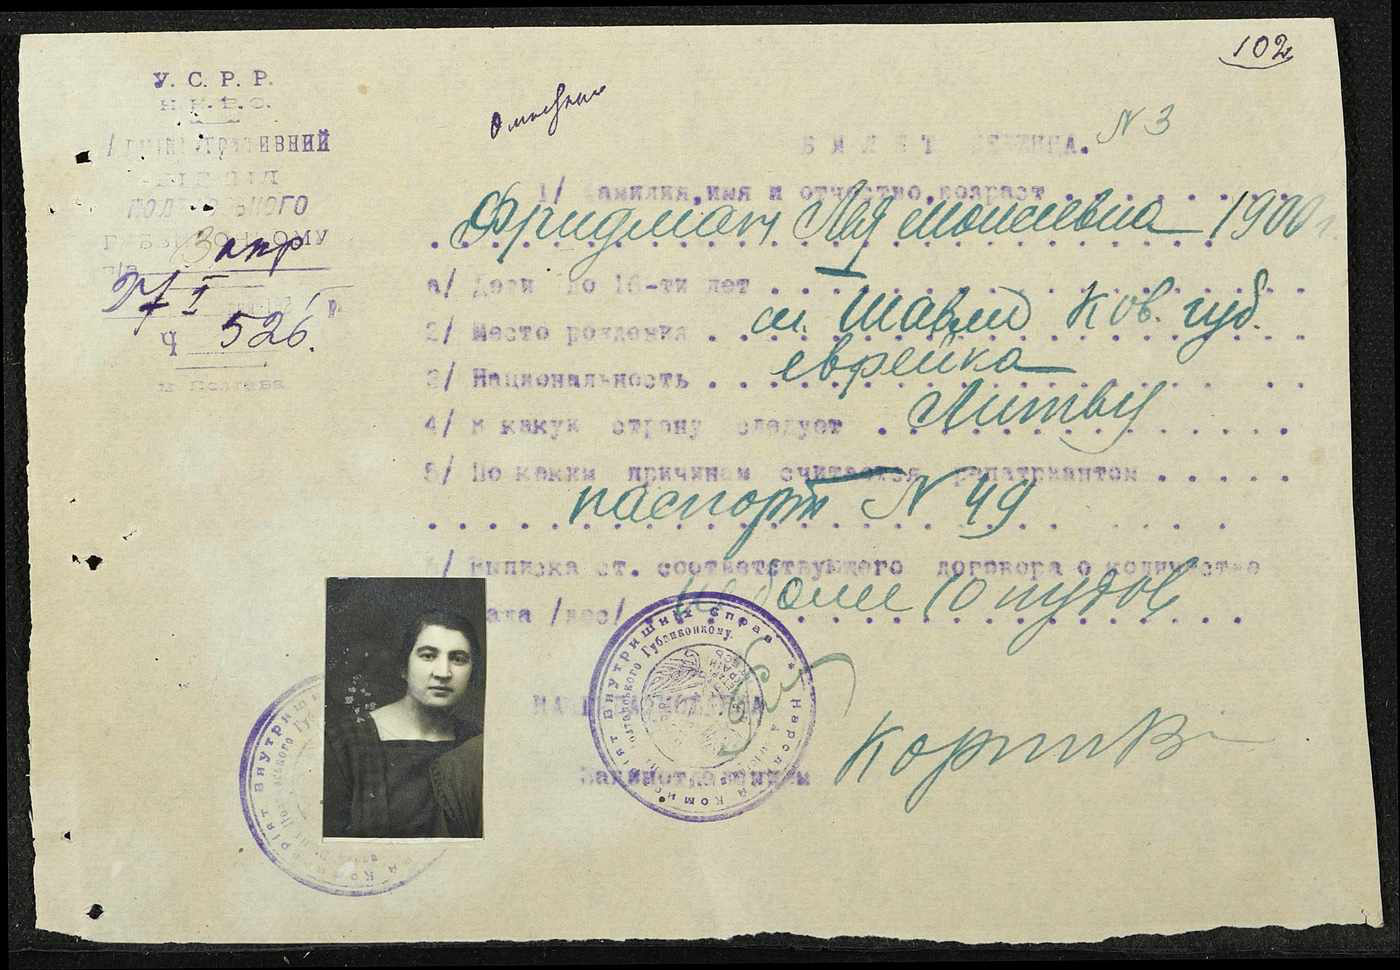 102
У. С. Р. Р.
Н. К. В. С.
N 3
Адміністративний
БИЛЕТ БЕЖЕНЦА.
ВІДДІЛ
1/ Фамилия, имя и отчество, возраст
ПОЛТАВСЬКОГО
Фридман Лея Моисеевна 1900 г.
ГУБВИКОНКОМУ
а/ Дети до 16-ти лет
27/I
2/ Место рождения м. Шавли Ков. губ.
Ч 526.
3/ Национальность еврейка
м Полтава
4/ В какую страну следует Литву
5/ По каким причинам считается репатриантом
паспорт N 49
6/ Выписка ст. соответствующего договора о количестве
/вес/ не более 10 пудов
Народній Комісаріят Внутришніх Справ
Полтавського Губвиконкому.